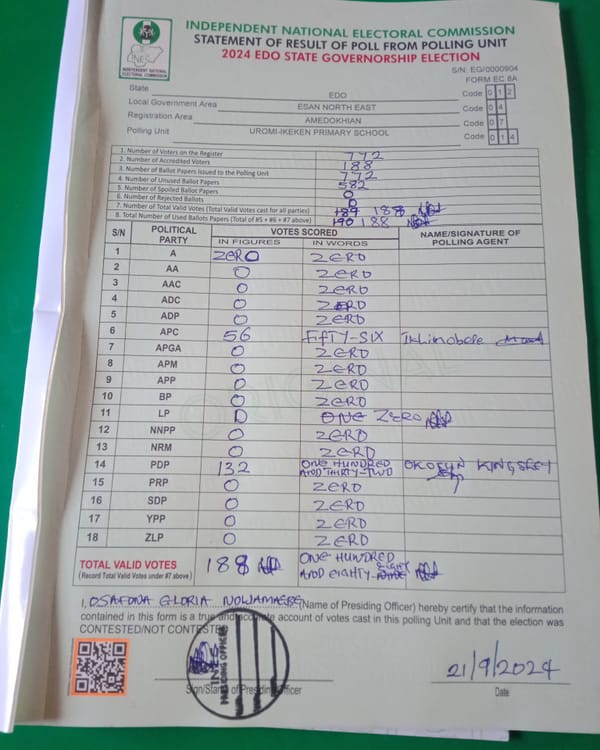 INDEPENDENT NATIONAL ELECTORAL COMMISSION
STATEMENT OF RESULT OF POLL FROM POLLING UNIT
2024 EDO STATE GOVERNORSHIP ELECTION
INEC
INDEPENDENT NATIONAL ELECTORAL COMMISSION
S/N: EG/0000904
FORM EC 8A
State EDO Code 0 1 2
Local Government Area ESAN NORTH EAST Code 0 4
Registration Area AMEDOKHIAN Code 0 7
Polling Unit UROMI-IKEKEN PRIMARY SCHOOL Code 0 1 4
1. Number of Voters on the Register 772
2. Number of Accredited Voters 188
3. Number of Ballot Papers Issued to the Polling Unit 772
4. Number of Unused Ballot Papers 582
5. Number of Spoiled Ballot Papers 0
6. Number of Rejected Ballots 0
7. Number of Total Valid Votes (Total Valid Votes cast for all parties) 189 188
8. Total Number of Used Ballots Papers (Total of #5 + #6 + #7 above) 190 188
S/N POLITICAL PARTY VOTES SCORED NAME/SIGNATURE OF POLLING AGENT
IN FIGURES IN WORDS
1 A ZERO ZERO
2 AA 0 ZERO
3 AAC 0 ZERO
4 ADC 0 ZERO
5 ADP 0 ZERO
6 APC 56 FIFTY-SIX
7 APGA 0 ZERO
8 APM 0 ZERO
9 APP 0 ZERO
10 BP 0 ZERO
11 LP 0 ONE ZERO
12 NNPP 0 ZERO
13 NRM 0 ZERO
14 PDP 132 ONE HUNDRED AND THIRTY-TWO KINGSLEY
15 PRP 0 ZERO
16 SDP 0 ZERO
17 YPP 0 ZERO
18 ZLP 0 ZERO
TOTAL VALID VOTES 188 ONE HUNDRED
(Record Total Valid Votes under #7 above) AND EIGHTY-EIGHT
I, OSAFONA GLORIA (Name of Presiding Officer) hereby certify that the information
contained in this form is a true and accurate account of votes cast in this polling Unit and that the election was
CONTESTED/NOT CONTESTED
INEC
PRESIDING OFFICER
Sign/Stamp of Presiding Officer
21/9/2024
Date